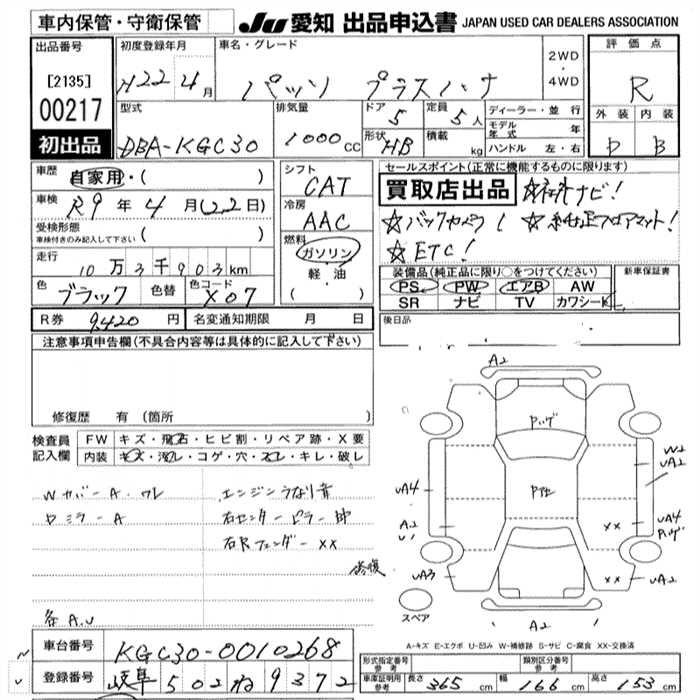 車内保管・守衛保管 JU 愛知 出品申込書 JAPAN USED CAR DEALERS ASSOCIATION
出品番号
[2135]
00217
初出品
初度登録年月
H22年4月
車名・グレード
パッソ プラスハナ
2WD・4WD
評価点
R
外装 内装
D B
型式
DBA-KGC30
排気量
1000cc
ドア
5
形状
HB
定員
5人
積載
kg
ディーラー・並行
モデル年式 年
ハンドル 左・右
車歴 自家用・( )
車検 R9年4月(22日)
受検形態
車検付きのみ記入して下さい ( )
走行
10万3千903km
色 ブラック 色替 色コード X07
シフト
CAT
冷房
AAC
燃料
ガソリン
軽・油
( )
セールスポイント(正常に機能するものに限ります)
買取店出品 ☆社外ナビ!
☆バックカメラ! ☆純正フロアマット!
☆ETC!
装備品(純正品に限り○をつけてください)
PS PW エアB AW
SR ナビ TV カワシート
新車保証書
後日品
R券 9,420円 名変通知期限 月 日
注意事項申告欄(不具合内容等は具体的に記入して下さい)
修復歴 有(箇所
検査員記入欄
FW キズ・飛石・ヒビ割・リペア跡・X要
内装 キズ・汚レ・コゲ・穴・スレ・キレ・破レ
Wカバー A. ワレ
ドミラー A
エンジンうなり音
右センターピラー
右Rフェンダー XX
修復
各A.U
A2
UA4
A2
UA3
W2
UA2
UA4
XX
XX
UA2
A2
スペア
A-キズ E-エクボ U-凹み W-補修跡 S-サビ C-腐食 XX-交換済
車台番号 KGC30-0010268
登録番号 岐阜502ね9372
形式指定番号 参考
類別区分番号 参考
車庫証明用 参考 長さ 365cm 幅 166cm 高さ 153cm